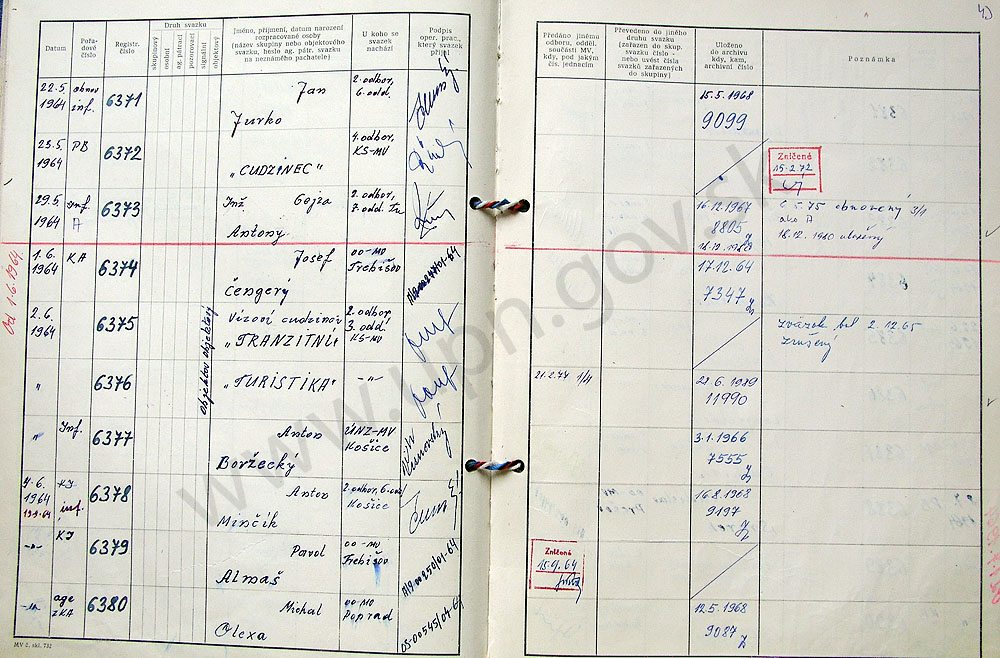 Datum
Pořadové číslo
Registr. číslo
Druh svazku
skupinový
osobní
ag. pátrací
pozorovací
signální
objektový
Jméno, příjmení, datum narození
rozpracované osoby
(název skupiny nebo objektového
svazku, heslo ag. pátr. svazku
na neznámého pachatele)
U koho se
svazek
nachází
Podpis
oper. prac.,
který svazek
přijal
Předáno jinému
odboru, odděl.
součásti MV,
kdy, pod jakým
čís. jednacím
Převedeno do jiného
druhu svazku
(zařazen do skup.
svazku číslo -
nebo uvést čísla
svazků zařazených
do skupiny)
Uloženo
do archivu
kdy, kam,
archivní číslo
Poznámka
49
22.5. 1964 obnov inf. 6371 Jan Jurko 2. odbor, 6. odd. 15.5.1968 9099
25.5. 1964 PB 6372 "CUDZINEC" 4. odbor, KS-MV
Zničené
15.2.72
29.5. 1964 Inf. A 6373 Inž. Gojza Antony 2. odbor, 16.12.1967 8805
6.5.75 obnovený 3/1
ako A
18.12.1980 uložený
Od 1.6.1964
1.6. 1964 KA 6374 Josef Čengerý OO-MV Trebišov 17.12.64 7347
2.6. 1964 6375 objektový Vízoví cudzinci "TRANZITNÍ" 2. odbor, 3. odd. KS-MV
zväzok bol 2.12.65
zrušený
" 6376 objektový "TURISTIKA" -"- 21.2.77 1/4 28.6.1989 11990
" Inf. 6377 Anton Boržecký ÚNZ-MV Košice 3.1.1966 7555
4.6. 1964 KI inf. 6378 Anton Minčík 2. odbor, 6. odd. Košice 16.8.1968 9197
-"- KI 6379 Pavol Almaš OO-MV Trebišov
Zničené
15.9.64
-"- age z KA 6380 Michal Olexa OO-MV Poprad 05-00545/04-64 12.5.1968 9087
MV č. skl. 732
www.upn.gov.sk